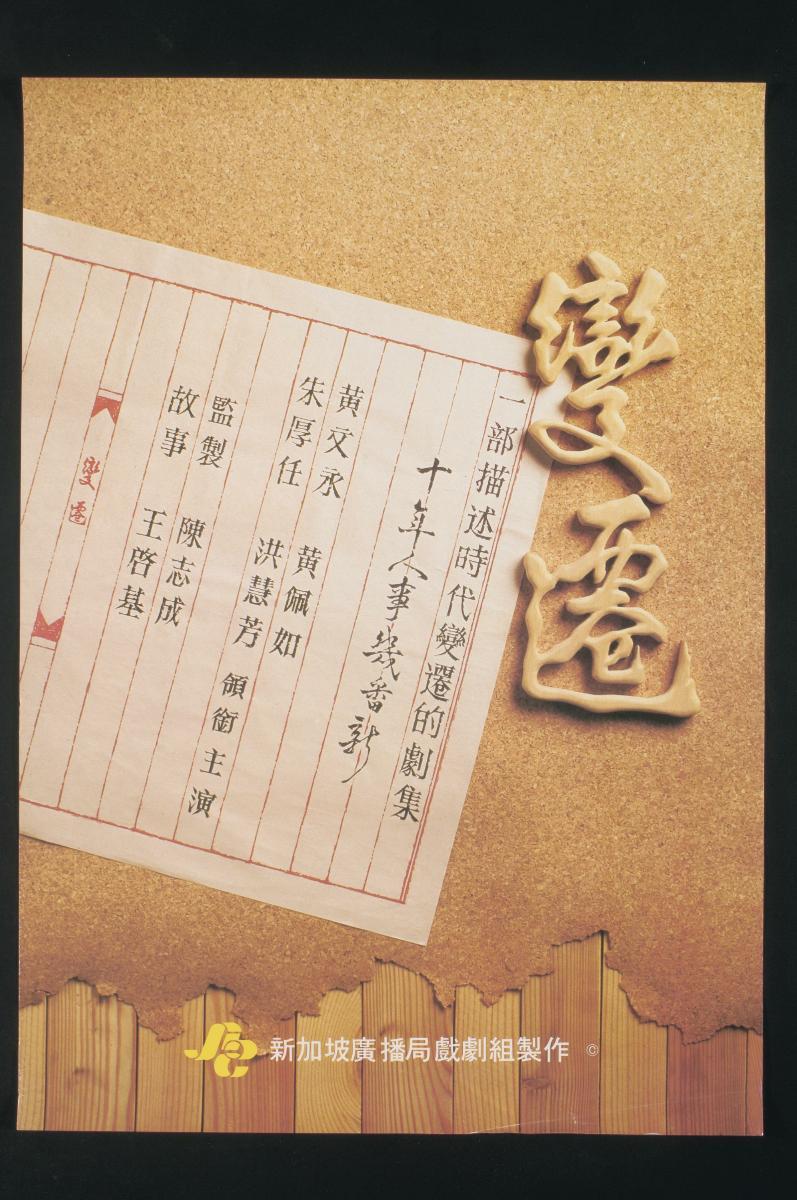 變遷
一部描述時代變遷的劇集
十年人事幾番新
黃文永 黃佩如
朱厚任 洪慧芳 領銜主演
監製 陳志成
故事 王啓基
變遷
SBC 新加坡廣播局戲劇組製作 ©